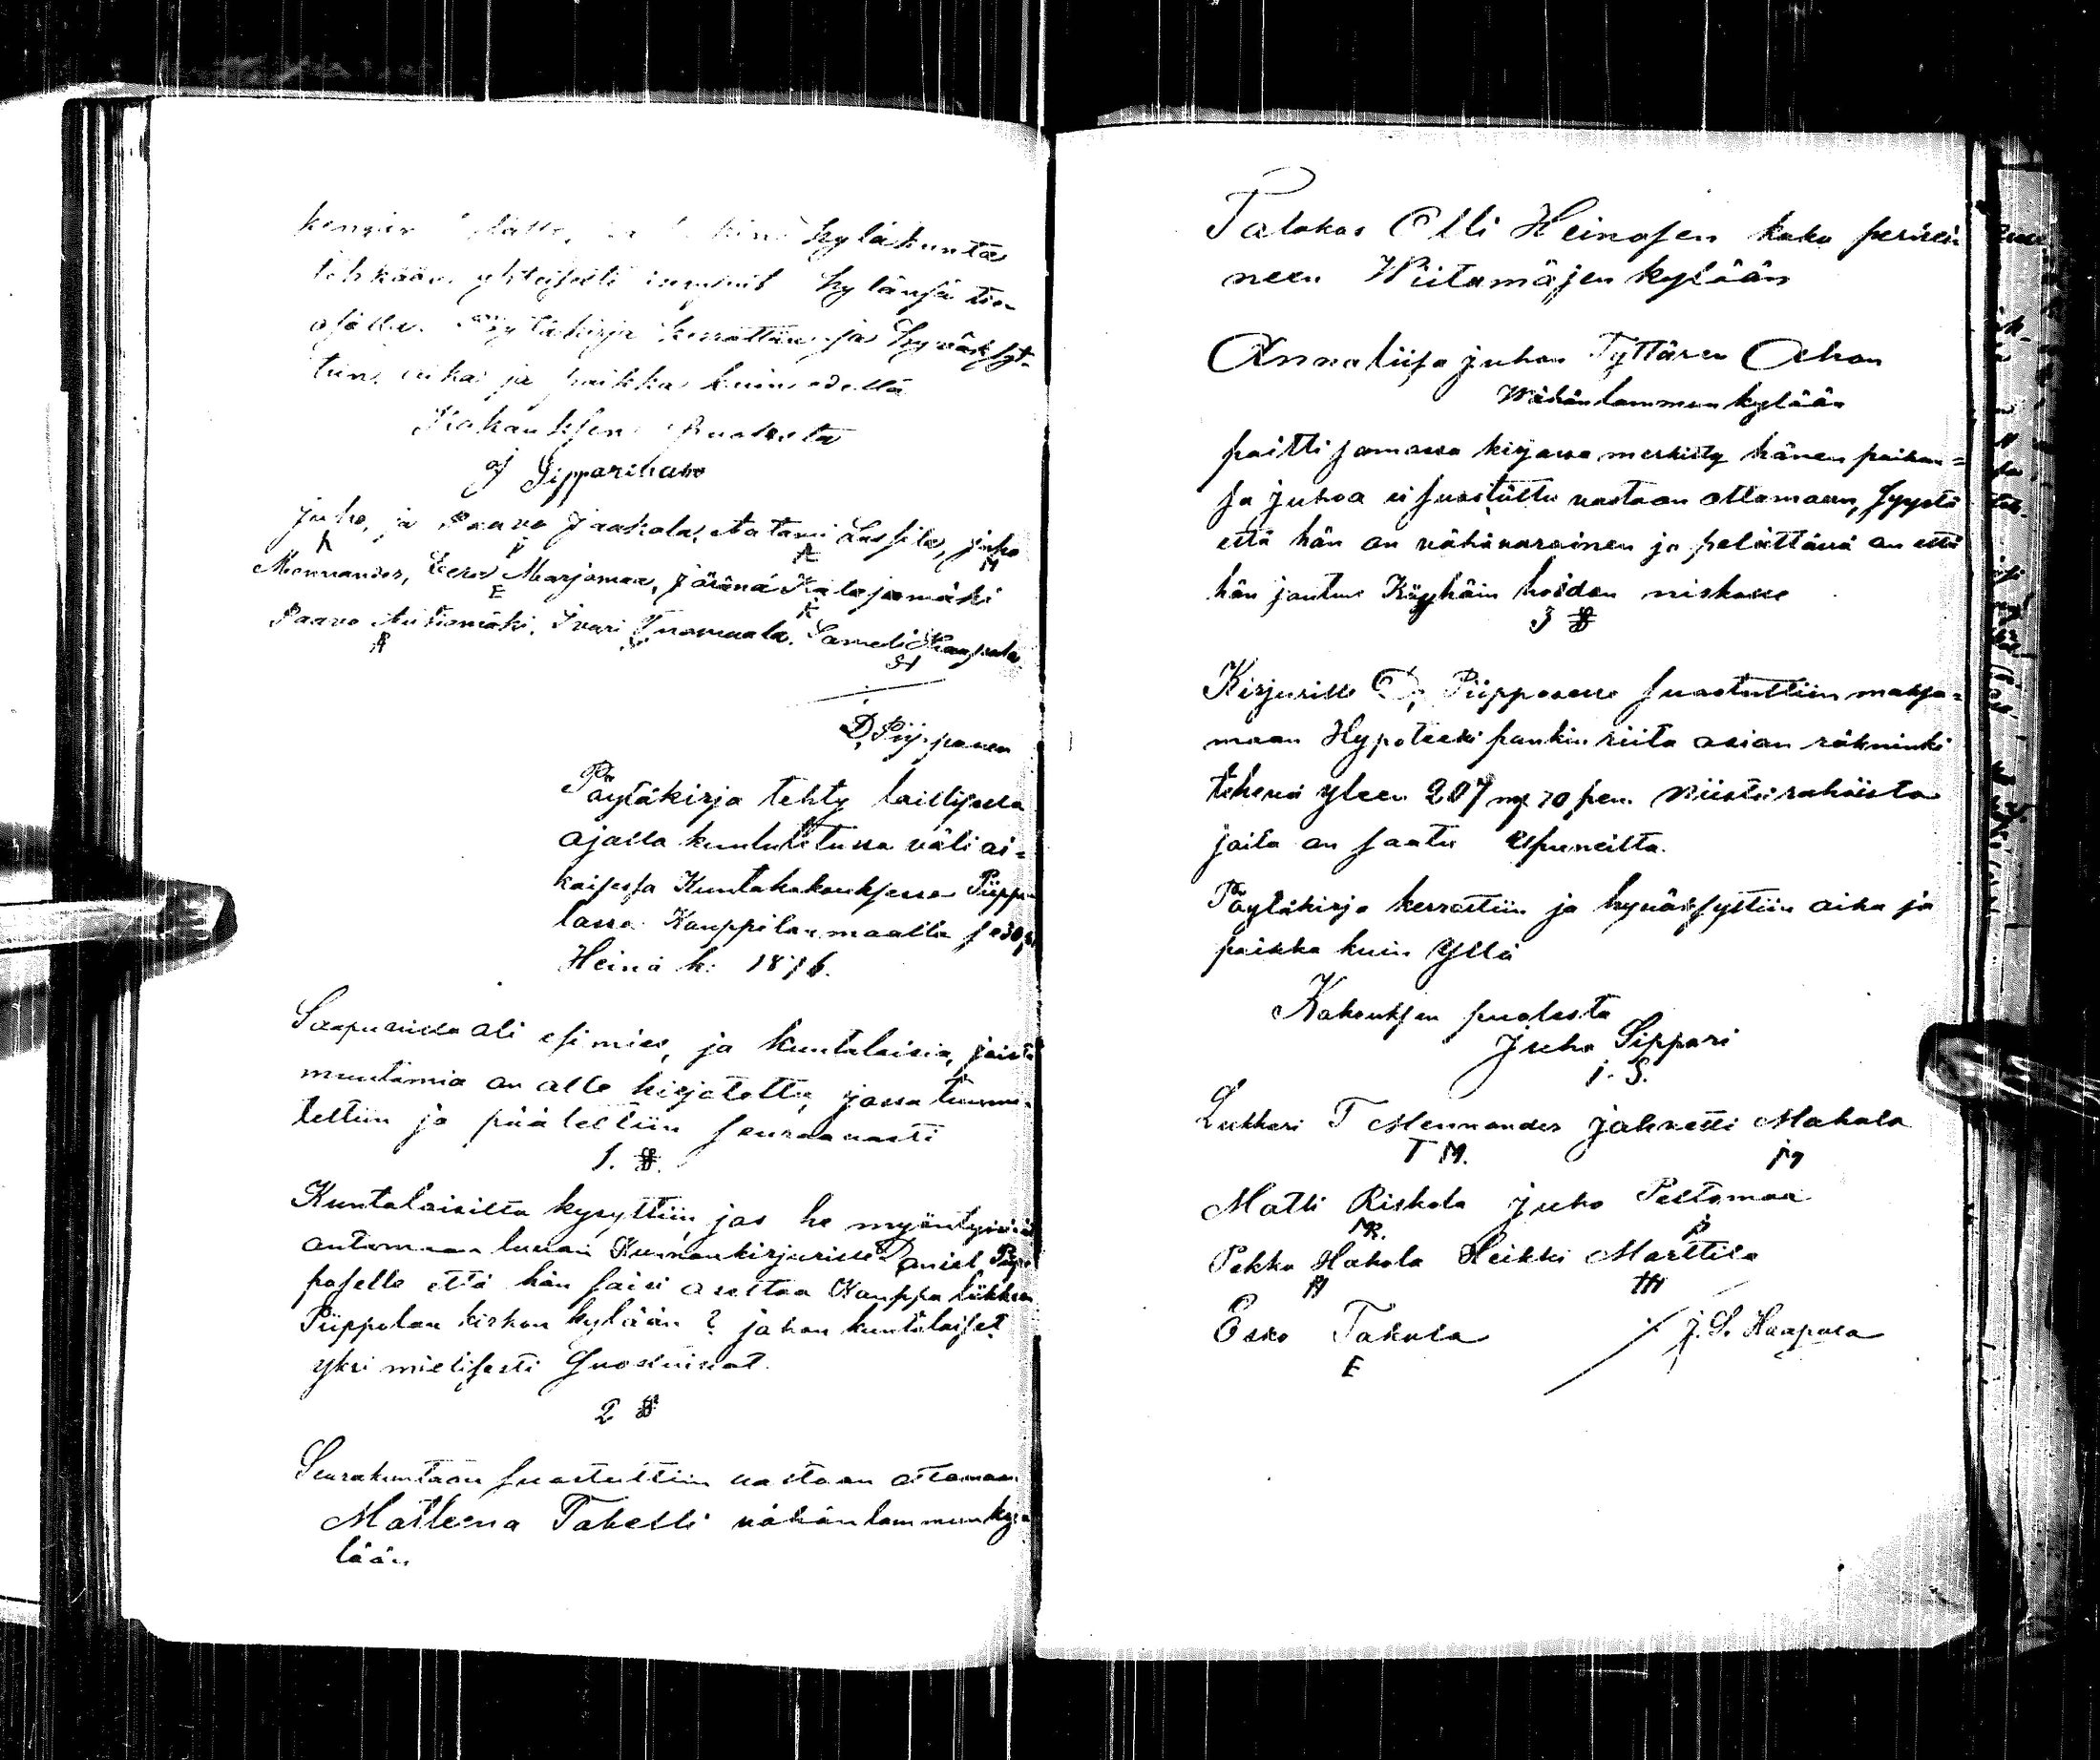 kyläkunta
tehkään yhteisesti kylänsä tie
osalla. Pöytäkirja kerrottiin ja hyväksyt-
tiin, aika ja paikka kuin edellä
Kokouksen puolesta
J Sipparihaho
Juho, ja Paavo Jaakola, Aatami Lassila, Juho
A P A M
Mennander, Eero Marjomaa, Jöränä Kalajamäki
E K
Paavo Autiomäki, Ivari Tuomaala. Sameli Haapala
A SH
D, Piipponen
Pöytäkirja tehty laillisella
ajalla kuulutetussa väli ai=
kaisessa Kuntakokouksessa Piippo
lassa Kauppilan maalla se 30,p
Heinä k: 1876.
Saapuvilla oli esimies, ja kuntalaisia, joista
muutamia on alle kirjotettu, jossa tuumi-
teltiin ja päätettiin seuraavasti
1. §.
Kuntalaisilta kysyttiin, jos he myöntyisivät
antamaan luvan Kunnankirjurille Daniel Piip
poselle että hän saisi asettaa Kauppa liikkeen
Piippolan kirkon kylään? johon kuntalaiset
yksi mielisesti suostuivat.
2 §
Seurakuntaan suostuttiin vastaan ottamaan
Matleena Tabelli vähänlammin ky=
lään
Talokas Olli Heinosen koko perinei
neen Wiitamäjen kylään
Annaliisa Juhon Tyttären Ahon
Wähänlammen kylään
paitti samassa kirjassa merkitty hänen poikan=
sa Juhoa ei suostuttu vastaan ottamaan, Syystä
että hän on vähävarainen ja pelättävä on että
hän joutuu Köyhäin hoidon niskalle
3 §
Kirjurille D, Piipposelle suostuttiin maksa=
maan Hypoteeki pankin riita asian räkninki
tehevä yleen 207 mg 70 pen. Niistä rahoista
joita on saatu Espuneilta.
Pöytäkirja kerrottiin ja hyväksyttiin aika ja
paikka kuin Yllä
Kokouksen puolesta
Juho Sippari
J. S.
Lukkari T Mennander Jahvetti Mahola
T M. JM
Matti Riskala Juho Peltomaa
MR. P
Pekka Hahola Heikki Marttila
PH HM
Esko Takola J. S. Haapala
E